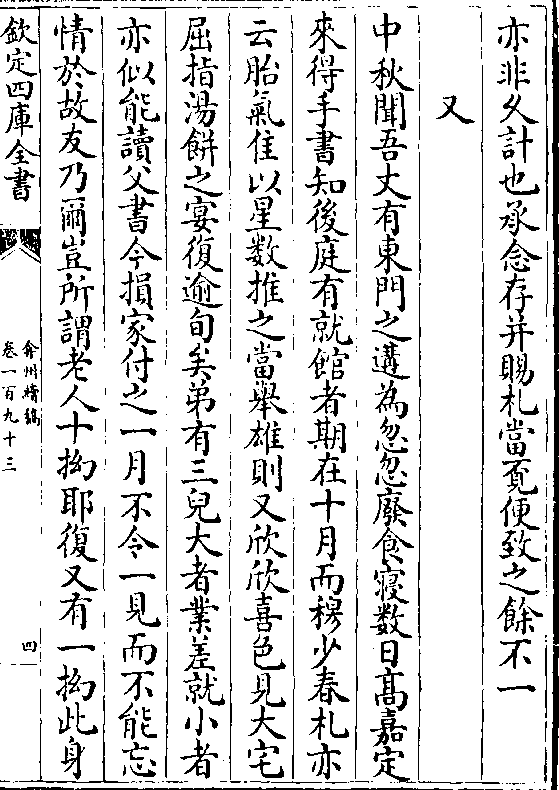 亦非久計也承念存并賜札當覓便致之餘不一
又
中秋聞吾丈有東門之遘為忽忽廢食寢数日髙嘉定
來得手書知後庭有就館者期在十月而穆少春札亦
云胎氣佳以星数推之當舉雄則又欣欣喜色見大宅
屈指湯餅之宴復逾旬矣弟有三兒大者業差就小者
亦似能讀父書今損家付之一月不令一見而不能忘
情於故友乃爾豈所謂老人十拗耶復又有一拗此身
欽定四庫全書
弇州續稿
卷一百九十三
四